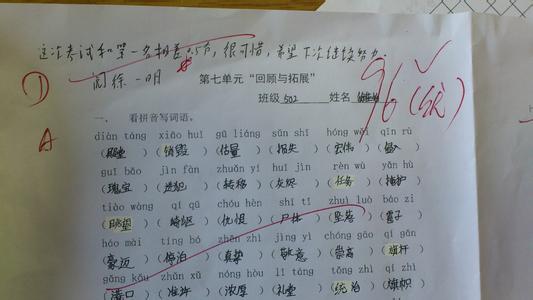 这次考试和第一名相差2.5分，很可惜，希望下次继续努力。
阅
第七单元“回顾与拓展”
96（优）
班级 502 姓名
A
一、 看拼音写词语。
diàn táng xiāo huǐ gū liáng sǔn shī hóng wěi qīn rù
（殿堂）（销毁）（估量）（损失）（宏伟）（侵入）
guī bǎo jìn fàn zhuǎn yí huī jìn rèn wù yǎn hù
（瑰宝）（进犯）（转移）（灰烬）（任务）（掩护）
tiào wàng qí qū chóu hèn shī tǐ zhuì luò báo zi
（眺望）（崎岖）（仇恨）（尸体）（坠落）（雹子）
háo mài tíng bó zhēn zhì jìng yì chóng gāo qí gān
（豪迈）（停泊）（真挚）（敬意）（崇高）（旗杆）
gǎng kǒu zhǔn xǔ nóng hòu lǐ táng tǒng zhì qí zhì
（港口）（准许）（浓厚）（礼堂）（统治）（旗帜）